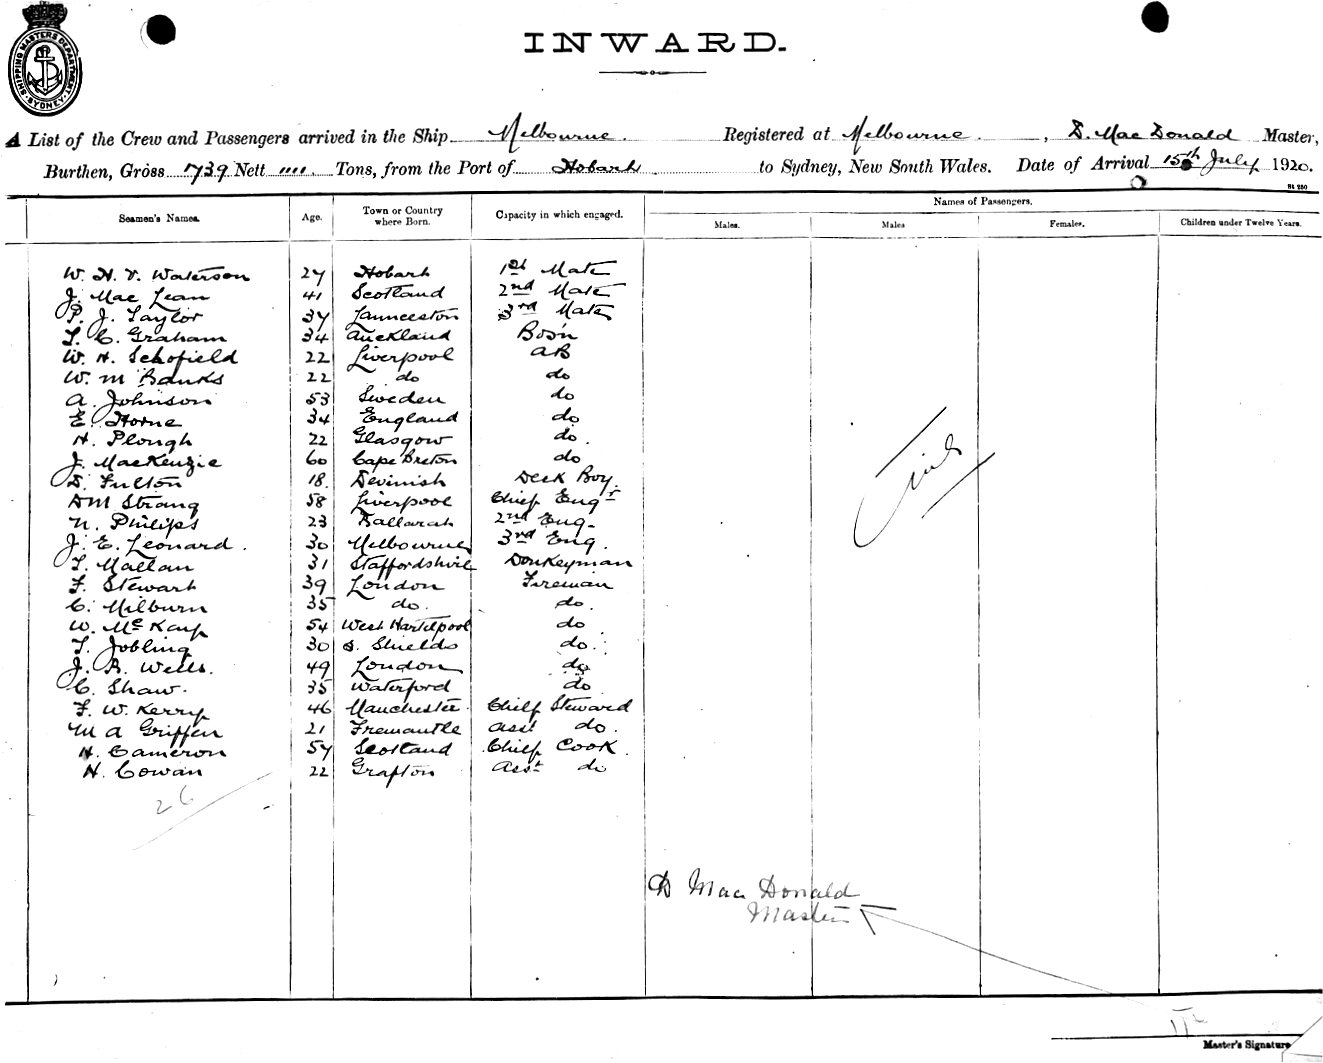 SHIPPING MASTERS DEPARTMENT
SYDNEY
INWARD.
A List of the Crew and Passengers arrived in the Ship Melbourne. Registered at Melbourne. , D. Mac Donald Master,
Burthen, Gross 739 Nett """" Tons, from the Port of Hobart to Sydney, New South Wales. Date of Arrival 15th July 1920.
St 250
Seamen's Names. Age. Town or Country where Born. Capacity in which engaged. Names of Passengers.
Males. Males Females. Children under Twelve Years.
W. H. V. Waterson 27 Hobart 1st Mate
J. Mac Lean 41 Scotland 2nd Mate
P. J. Taylor 37 Launceston 3rd Mate
T. C. Graham 34 Auckland Bos'n
W. H. Schofield 22 Liverpool AB
W. M Banks 22 do do
A. Johnson 53 Sweden do
E. Horne 34 England do
H. Plough 22 Glasgow do.
J. MacKenzie 60 Cape Breton do
D. Fulton 18. Devinish Deck Boy.
D M Strang 58 Liverpool Chief Engr
N. Philips 23 Ballarat 2nd Eng.
J. E. Leonard. 30 Melbourne 3rd Eng.
T. Mallan 31 Staffordshire Donkeyman
F. Stewart 39 London Fireman
C. Milburn 35 do. do.
W. McKay 54 West Hartlepool do
T. Jobling 30 S. Shields do.
J. R. Wells. 49 London do
C. Shaw. 35 Waterford do
F. W. Kerry 46 Manchester. Chief Steward
M A Griffen 21 Fremantle Asst do.
H. Cameron 57 Scotland Chief Cook.
H. Cowan 22 Grafton Asst do
26
D Mac Donald
Master
Master's Signature